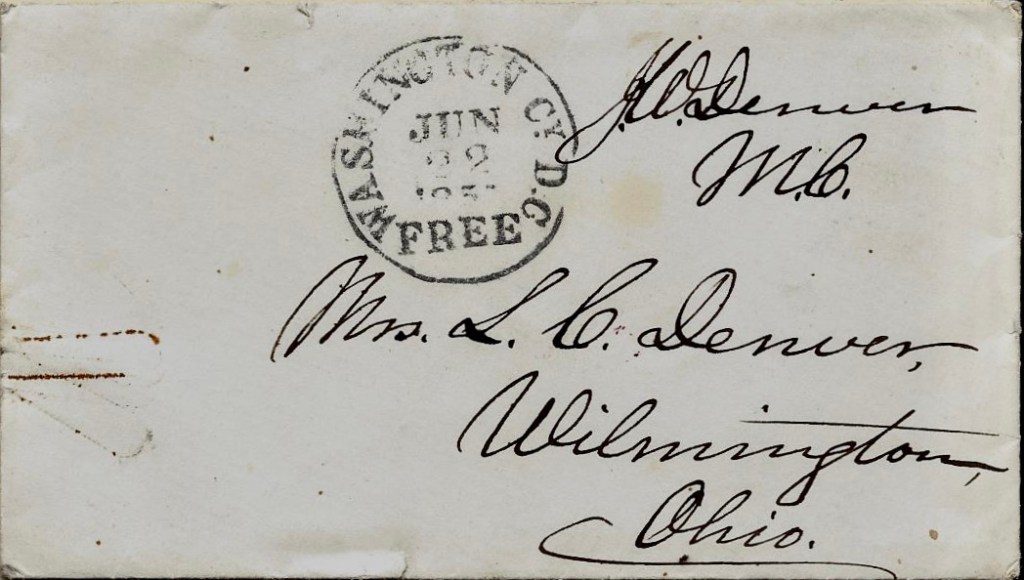 WASHINGTON CY. D.C
JUN
22
FREE
J.W. Denver
M.C.
Mrs. L. C. Denver,
Wilmington,
Ohio.